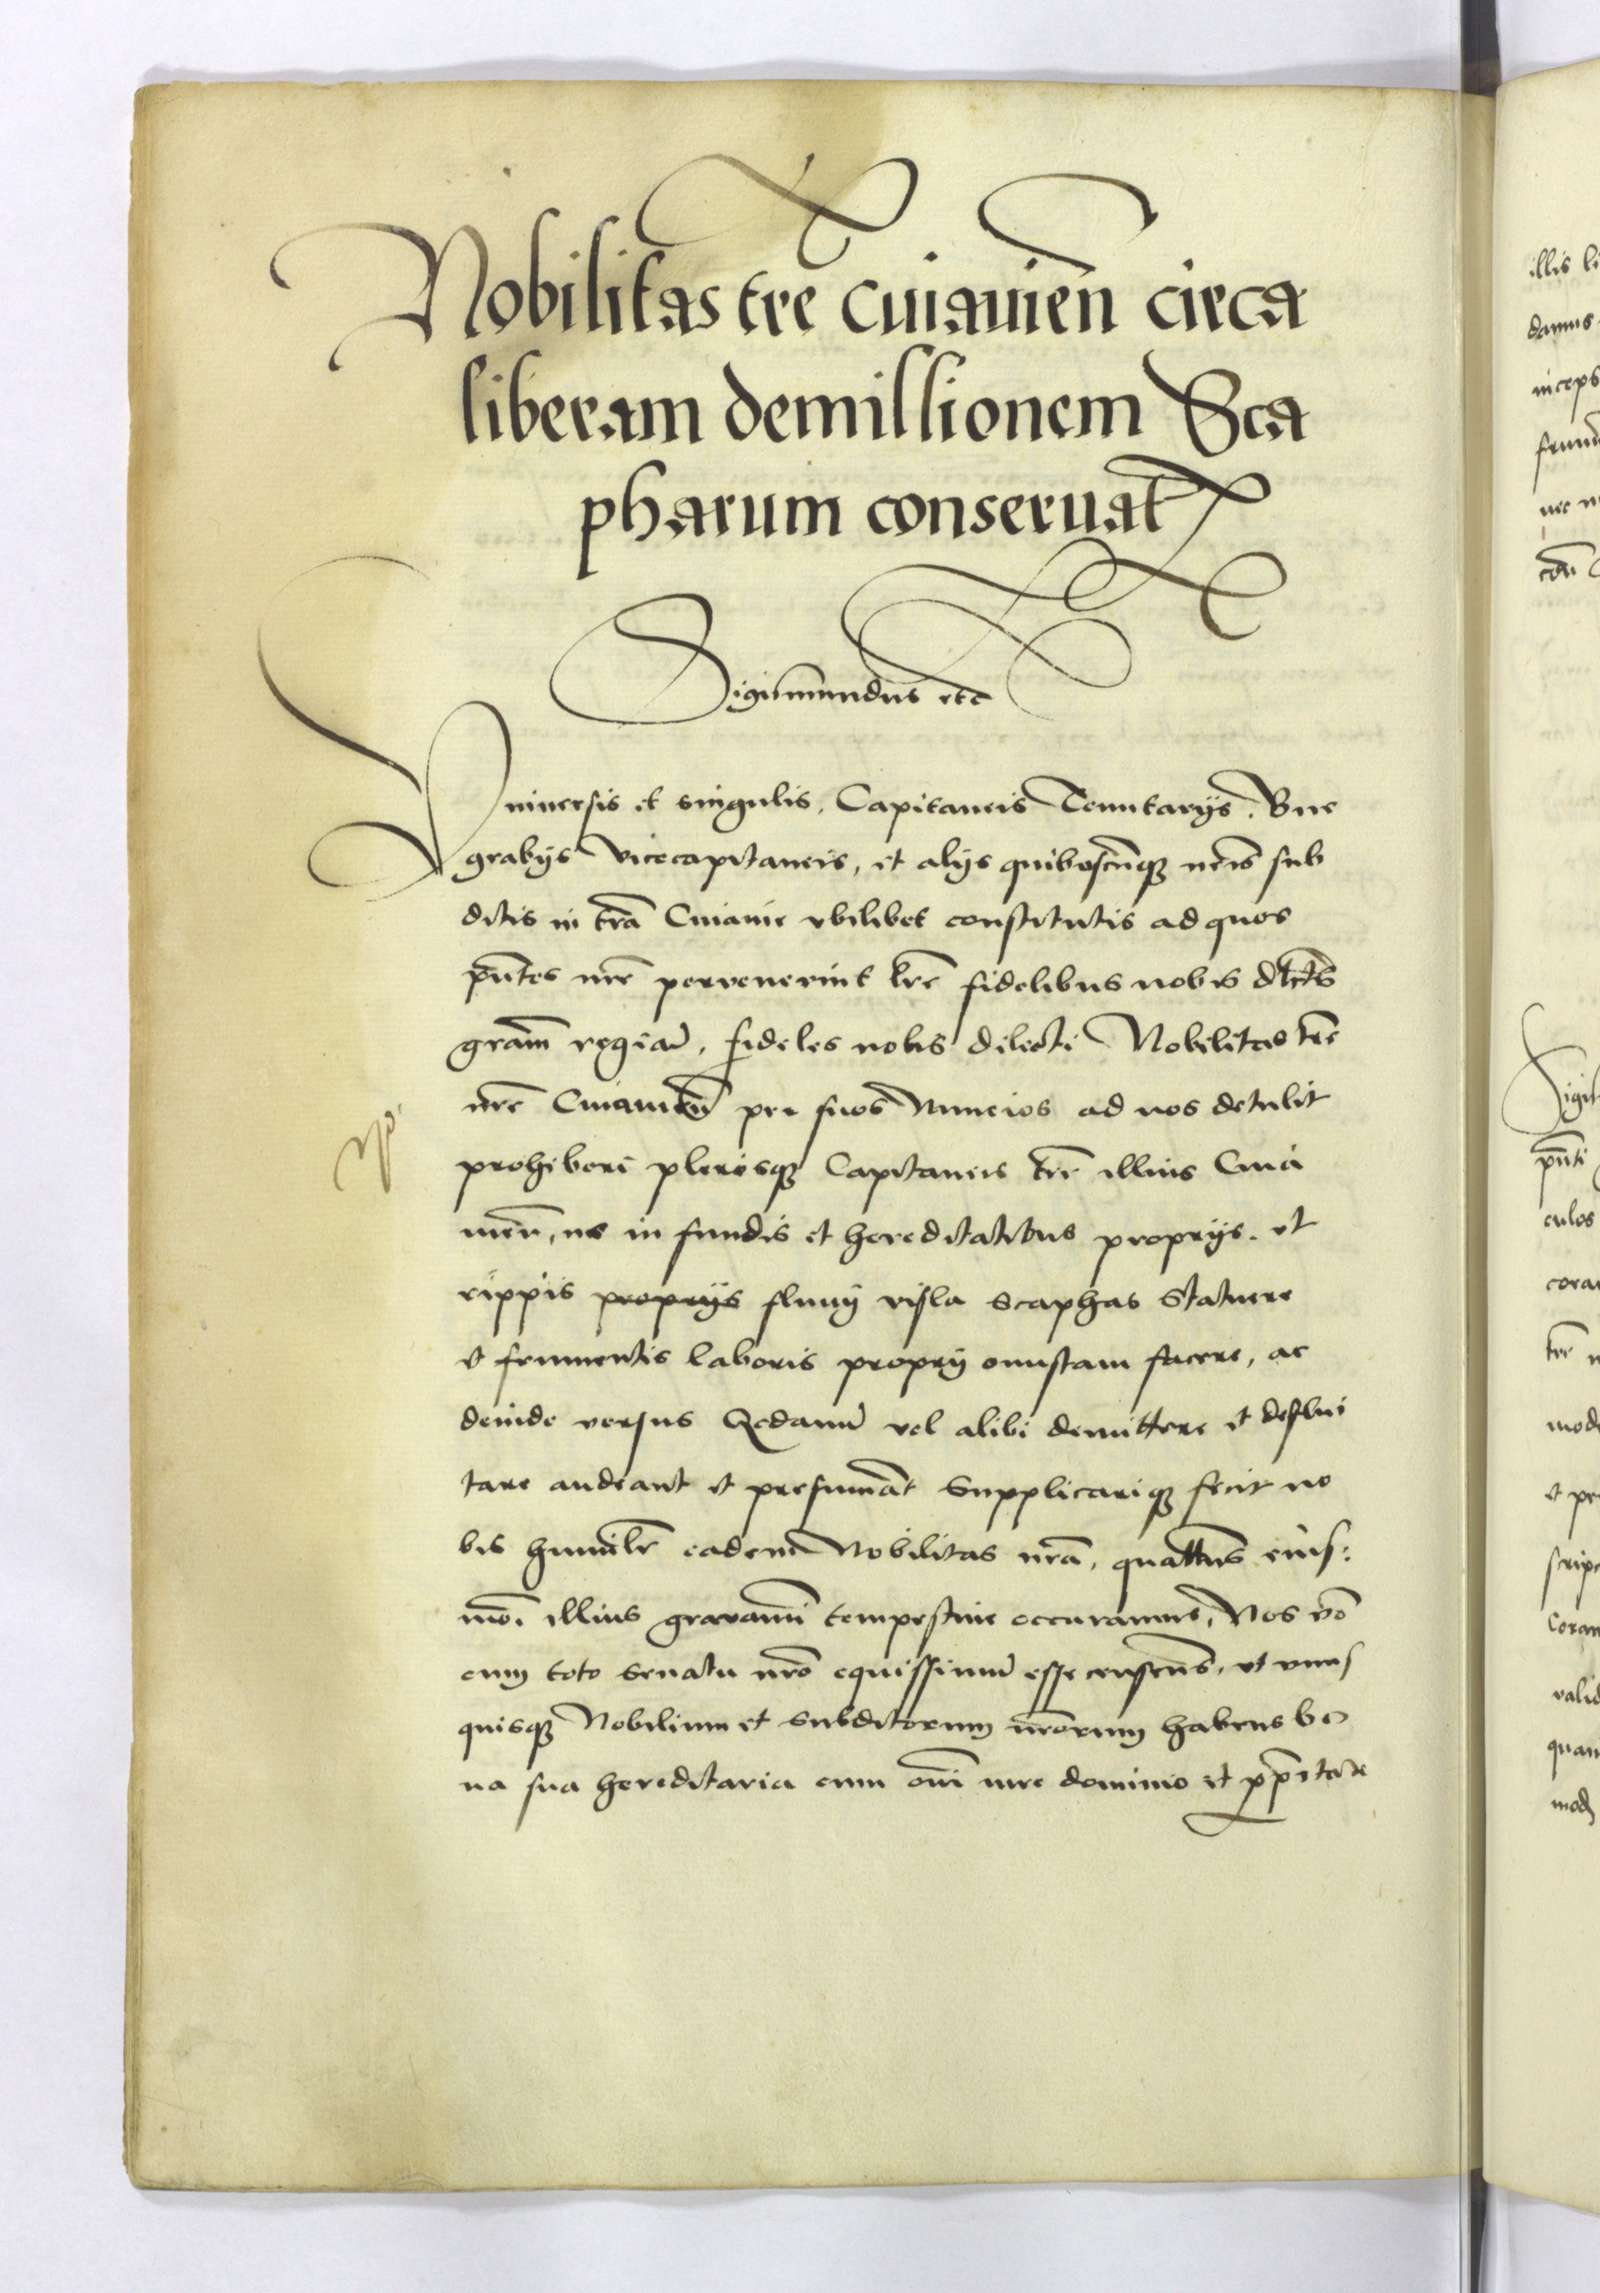 Nobilitas tre Cuiauien circa
liberam demissionem Sca
pharum conseruat
Sigismundus etc
Vniuersis et singulis, Capitaneis Tenutarijs, Bur
grabijs Vicecapitaneis, et alijs quibuscunq; nris sub
ditis in tra Cuiauie vbilibet constitutis ad quos
pntes nre pervenerint lre fidelibus nobis dilectis
gram regiam, fideles nobis dilecti Nobilitas tre
nre Cuiauien per suos Nuncios ad nos detulit
prohiberi plerisq; Capitaneis tre illius Cuia
uien, ne in fundis et hereditatibus proprijs, et
rippis proprijs fluuij visla scaphas Statuere
et frumentis laboris proprij onustam facere, ac
deinde versus Gedanum vel alibi demittere et defluи
tare audeant et presumant Supplicariq; fecit no
bis humilr eadem Nobilitas nra, quattus eius:
moi illius grauamini tempestiue occuramus, Nos vo
cum toto Senatu nro equissimum esse censens, vt vnus
quisq; Nobilium et Subditorum nrorum habens bo
na sua hereditaria cum omi iure dominio et pprietate
illis li
damus
inceps
culos
corar
tre n
mode
et pre
scrip
Coram
valid
quam
mod